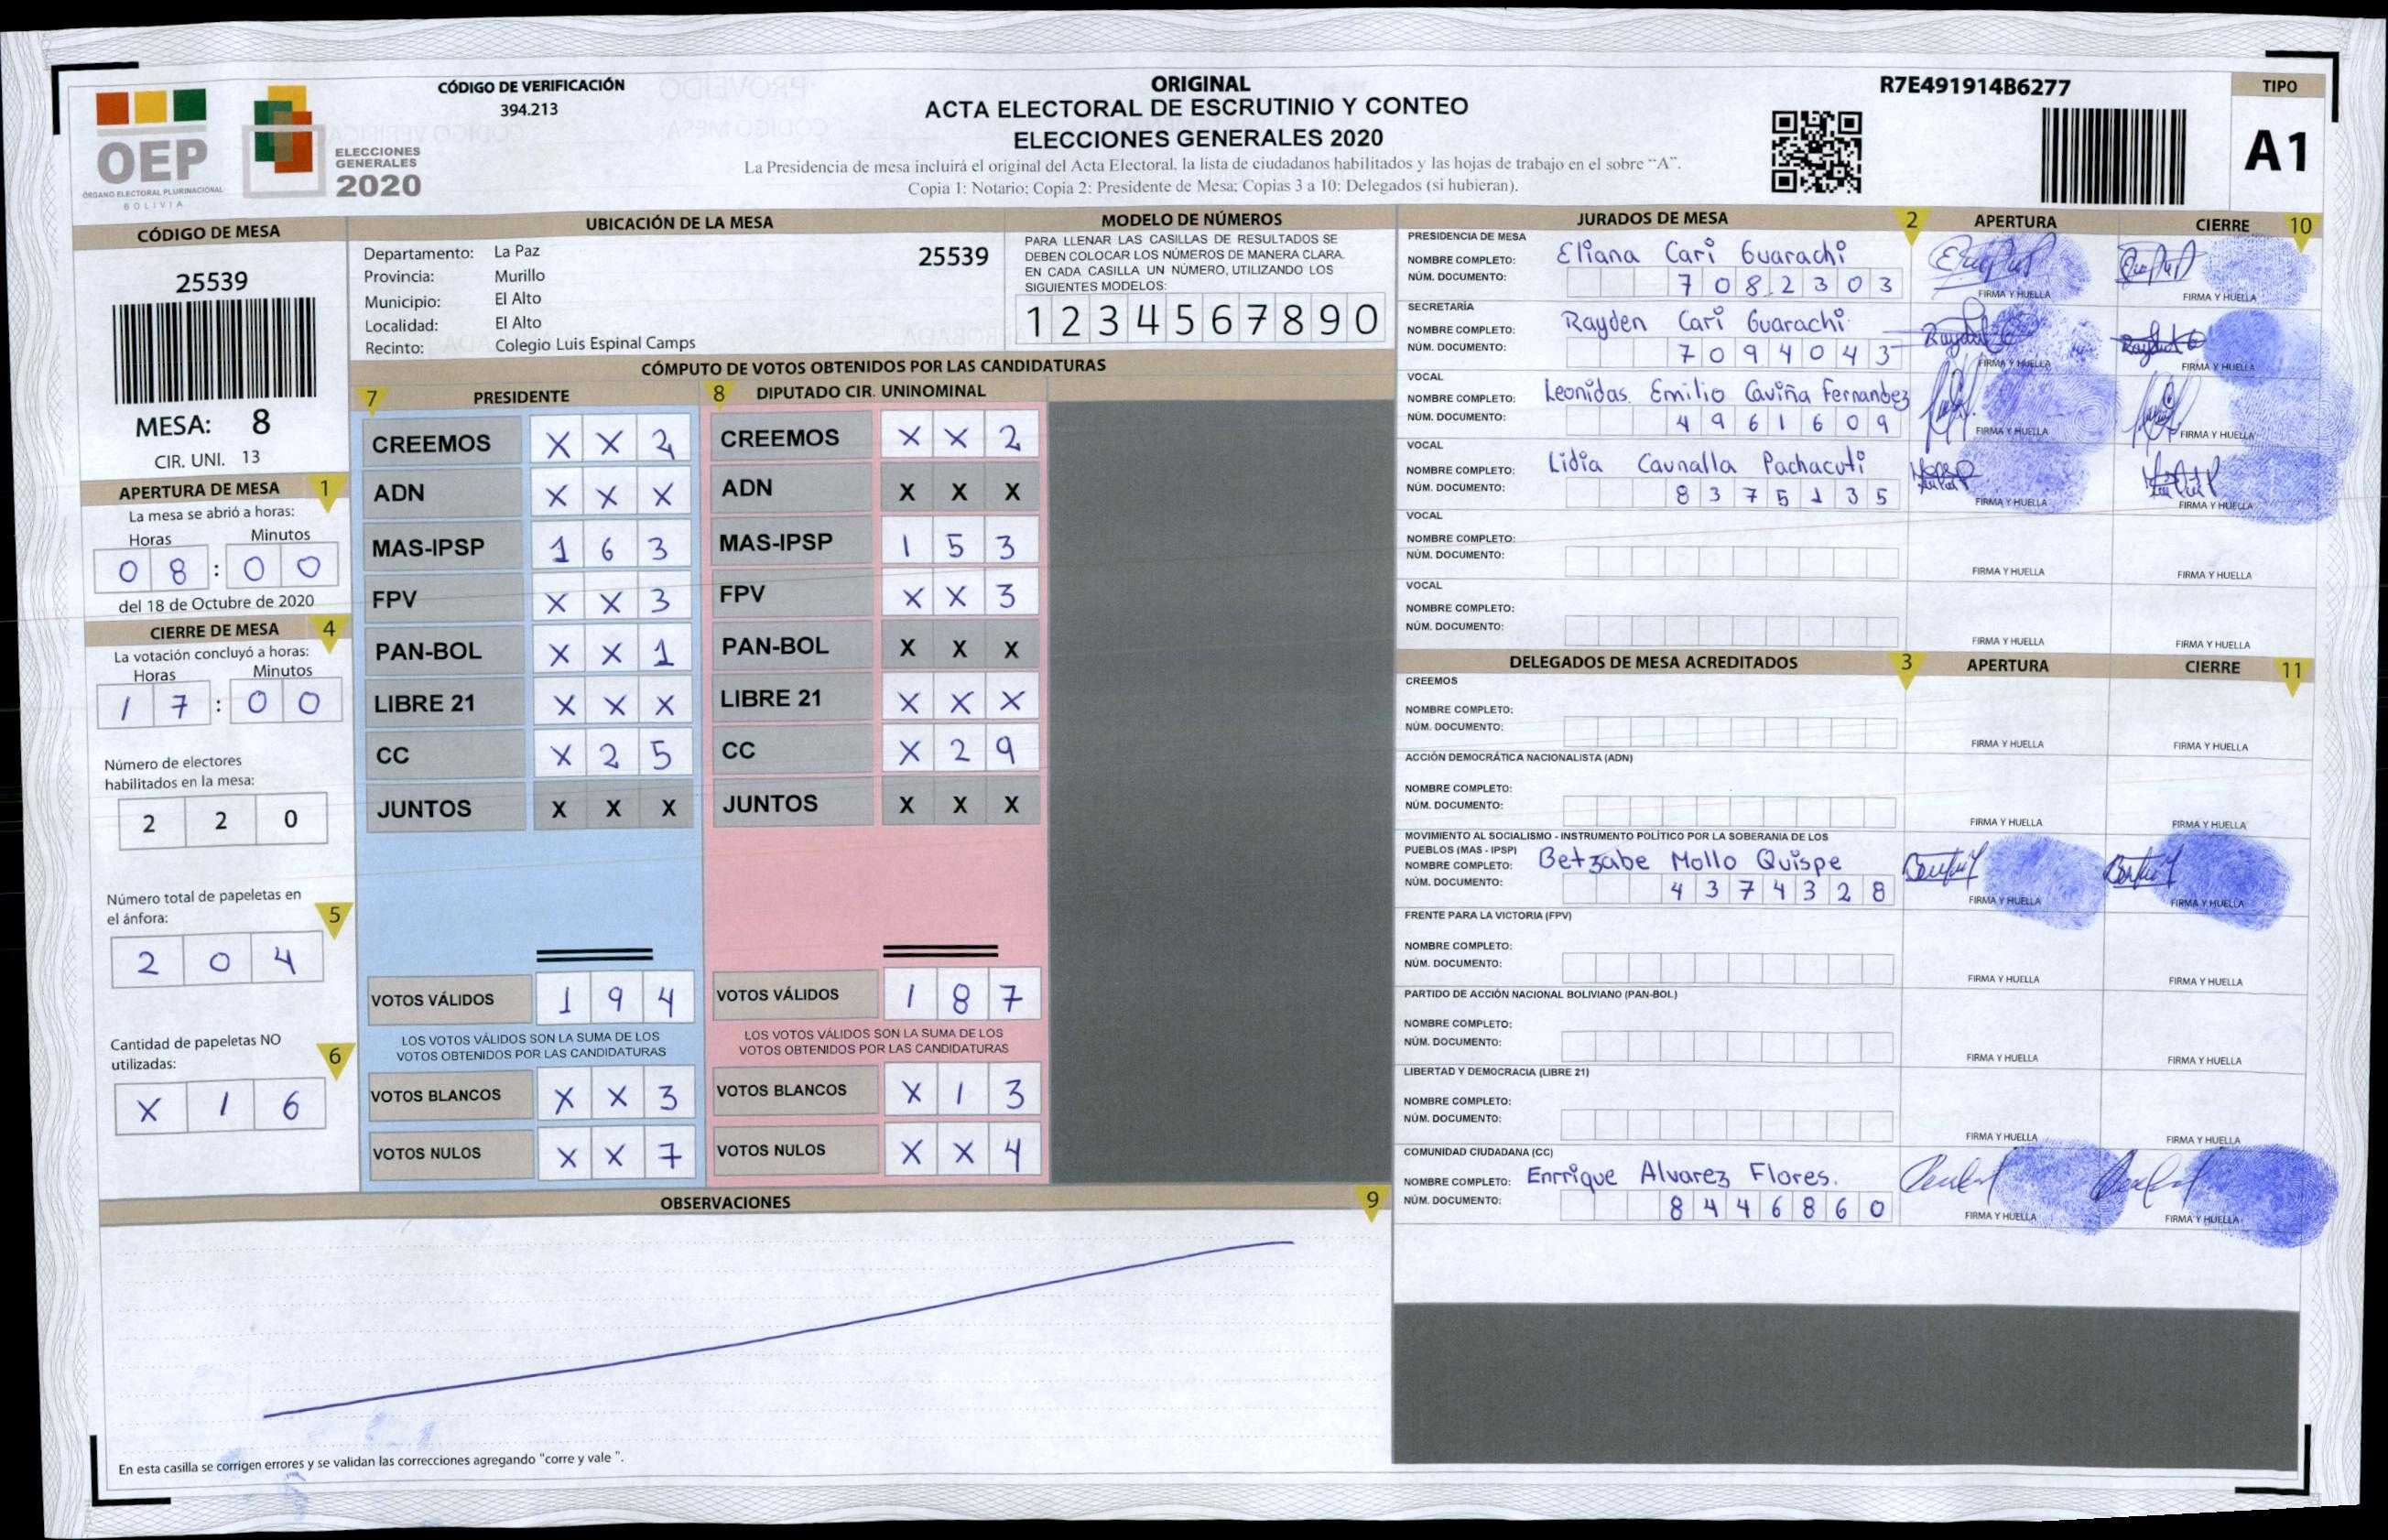 CÓDIGO DE VERIFICACIÓN
394.213
ORIGINAL
ACTA ELECTORAL DE ESCRUTINIO Y CONTEO
ELECCIONES GENERALES 2020
La Presidencia de mesa incluirá el original del Acta Electoral, la lista de ciudadanos habilitados y las hojas de trabajo en el sobre “A”.
Copia 1: Notario; Copia 2: Presidente de Mesa; Copias 3 a 10: Delegados (si hubieran).
R7E491914B6277
TIPO
A1
OEP
ÓRGANO ELECTORAL PLURINACIONAL
BOLIVIA
ELECCIONES
GENERALES
2020
CÓDIGO DE MESA
25539
MESA: 8
CIR. UNI. 13
APERTURA DE MESA 1
La mesa se abrió a horas:
Horas Minutos
0 8 : 0 0
del 18 de Octubre de 2020
CIERRE DE MESA 4
La votación concluyó a horas:
Horas Minutos
1 7 : 0 0
Número de electores
habilitados en la mesa:
2 2 0
Número total de papeletas en
el ánfora: 5
2 0 4
Cantidad de papeletas NO
utilizadas: 6
X 1 6
UBICACIÓN DE LA MESA
Departamento: La Paz 25539
Provincia: Murillo
Municipio: El Alto
Localidad: El Alto
Recinto: Colegio Luis Espinal Camps
MODELO DE NÚMEROS
PARA LLENAR LAS CASILLAS DE RESULTADOS SE
DEBEN COLOCAR LOS NÚMEROS DE MANERA CLARA.
EN CADA CASILLA UN NÚMERO, UTILIZANDO LOS
SIGUIENTES MODELOS:
1 2 3 4 5 6 7 8 9 0
CÓMPUTO DE VOTOS OBTENIDOS POR LAS CANDIDATURAS
7 PRESIDENTE
CREEMOS X X 2
ADN X X X
MAS-IPSP 1 6 3
FPV X X 3
PAN-BOL X X 1
LIBRE 21 X X X
CC X 2 5
JUNTOS X X X
VOTOS VÁLIDOS 1 9 4
LOS VOTOS VÁLIDOS SON LA SUMA DE LOS
VOTOS OBTENIDOS POR LAS CANDIDATURAS
VOTOS BLANCOS X X 3
VOTOS NULOS X X 7
8 DIPUTADO CIR. UNINOMINAL
CREEMOS X X 2
ADN X X X
MAS-IPSP 1 5 3
FPV X X 3
PAN-BOL X X X
LIBRE 21 X X X
CC X 2 9
JUNTOS X X X
VOTOS VÁLIDOS 1 8 7
LOS VOTOS VÁLIDOS SON LA SUMA DE LOS
VOTOS OBTENIDOS POR LAS CANDIDATURAS
VOTOS BLANCOS X 1 3
VOTOS NULOS X X 4
OBSERVACIONES 9
En esta casilla se corrigen errores y se validan las correcciones agregando “corre y vale ”.
JURADOS DE MESA 2 APERTURA CIERRE 10
PRESIDENCIA DE MESA
NOMBRE COMPLETO: Eliana Cari Guarachi
NÚM. DOCUMENTO: 7 0 8 2 3 0 3
FIRMA Y HUELLA FIRMA Y HUELLA
SECRETARÍA
NOMBRE COMPLETO: Rayden Cari Guarachi
NÚM. DOCUMENTO: 7 0 9 4 0 4 3
FIRMA Y HUELLA FIRMA Y HUELLA
VOCAL
NOMBRE COMPLETO: Leonidas Emilio Caviña Fernandez
NÚM. DOCUMENTO: 4 9 6 1 6 0 9
FIRMA Y HUELLA FIRMA Y HUELLA
VOCAL
NOMBRE COMPLETO: Lidia Caunalla Pachacuti
NÚM. DOCUMENTO: 8 3 7 5 1 3 5
FIRMA Y HUELLA FIRMA Y HUELLA
VOCAL
NOMBRE COMPLETO:
NÚM. DOCUMENTO:
FIRMA Y HUELLA FIRMA Y HUELLA
VOCAL
NOMBRE COMPLETO:
NÚM. DOCUMENTO:
FIRMA Y HUELLA FIRMA Y HUELLA
DELEGADOS DE MESA ACREDITADOS 3 APERTURA CIERRE 11
CREEMOS
NOMBRE COMPLETO:
NÚM. DOCUMENTO:
FIRMA Y HUELLA FIRMA Y HUELLA
ACCIÓN DEMOCRÁTICA NACIONALISTA (ADN)
NOMBRE COMPLETO:
NÚM. DOCUMENTO:
FIRMA Y HUELLA FIRMA Y HUELLA
MOVIMIENTO AL SOCIALISMO - INSTRUMENTO POLÍTICO POR LA SOBERANIA DE LOS
PUEBLOS (MAS - IPSP)
NOMBRE COMPLETO: Betzabe Mollo Quispe
NÚM. DOCUMENTO: 4 3 7 4 3 2 8
FIRMA Y HUELLA FIRMA Y HUELLA
FRENTE PARA LA VICTORIA (FPV)
NOMBRE COMPLETO:
NÚM. DOCUMENTO:
FIRMA Y HUELLA FIRMA Y HUELLA
PARTIDO DE ACCIÓN NACIONAL BOLIVIANO (PAN-BOL)
NOMBRE COMPLETO:
NÚM. DOCUMENTO:
FIRMA Y HUELLA FIRMA Y HUELLA
LIBERTAD Y DEMOCRACIA (LIBRE 21)
NOMBRE COMPLETO:
NÚM. DOCUMENTO:
FIRMA Y HUELLA FIRMA Y HUELLA
COMUNIDAD CIUDADANA (CC)
NOMBRE COMPLETO: Enrrique Alvarez Flores.
NÚM. DOCUMENTO: 8 4 4 6 8 6 0
FIRMA Y HUELLA FIRMA Y HUELLA